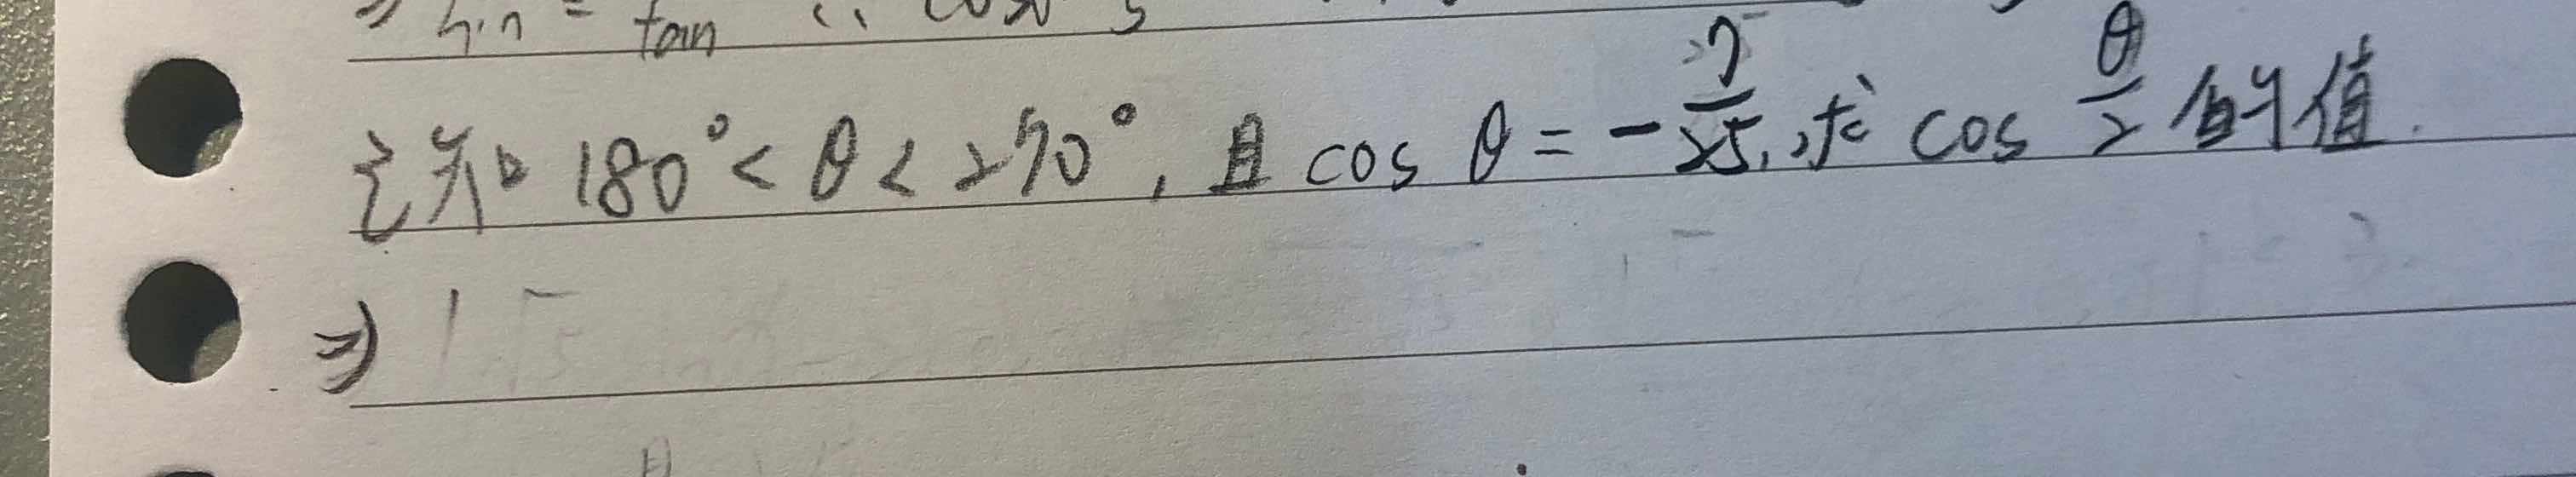 ⇒ sin = tan
已知 180° < θ < 270°, 且 cos θ = -7/25, 求 cos θ/2 的值.
⇒